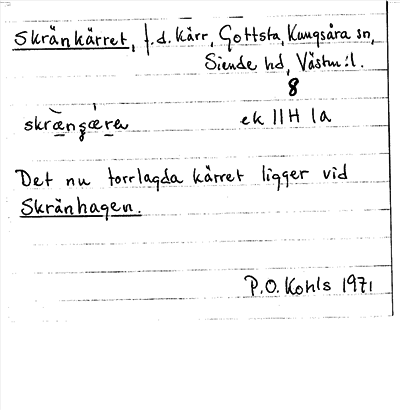 Skränkärret, f.d. kärr, Gottsta, Kungsåra sn,
Siende hd, Västm:l.
8
skræ̀ngǽrea ek 11H 1a
Det nu torrlagda kärret ligger vid
Skränhagen.
P.O. Kohls 1971